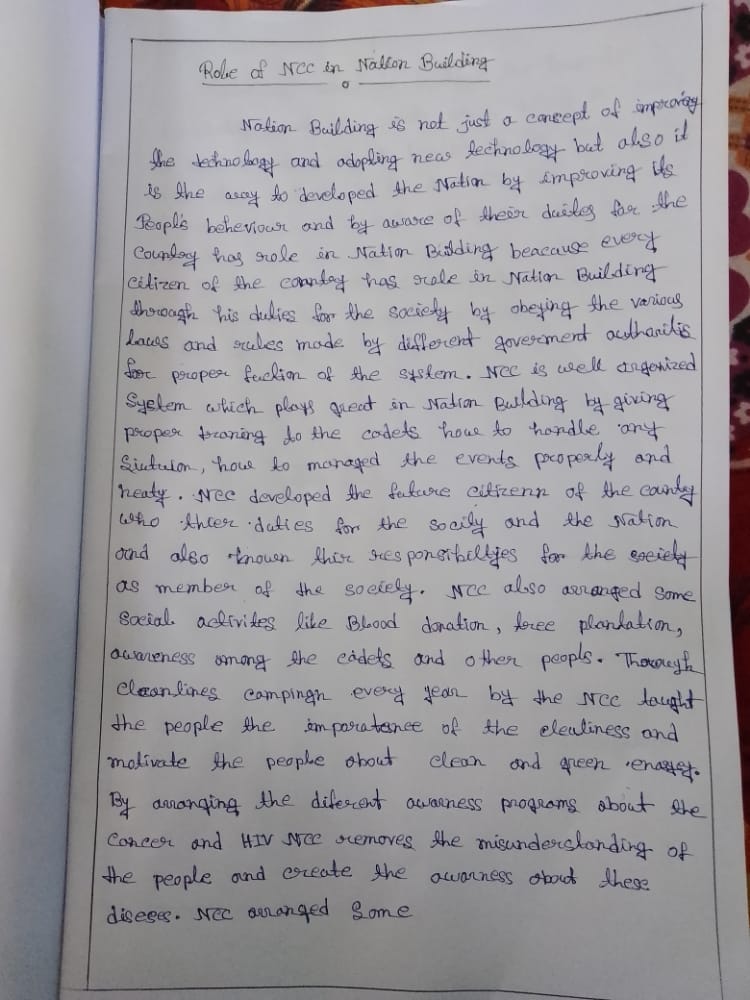 Role of NCC in Nation Building
Nation Building is not just a concept of improving
the technology and adopting new technology but also it
is the way to developed the Nation by improving its
People's beheviour and by aware of their duties for the
Country has role in Nation Building beacause every
citizen of the country has role in Nation Building
through his duties for the society by obeying the various
laws and rules made by different goverment authoritis
for proper fuction of the system. NCC is well organized
System which plays great in Nation Building by giving
proper traning to the cadets how to handle any
Siutuion, how to managed the events properly and
neaty. NCC developed the future citizenn of the country
who thier duties for the socily and the Nation
and also known thir responsibiltyies for the society
as member of the society. NCC also arranged some
Social activites like Blood donation, tree plantation,
awareness among the cadets and other peopls. Thorough
cleanlines campingn every year by the NCC taught
the people the imparatence of the clealiness and
motivate the people about clean and green
By arranging the diferent awarness programs about the
Cancer and HIV NCC removes the misunderstanding of
the people and create the awarness about these
diseses. NCC arranged Some